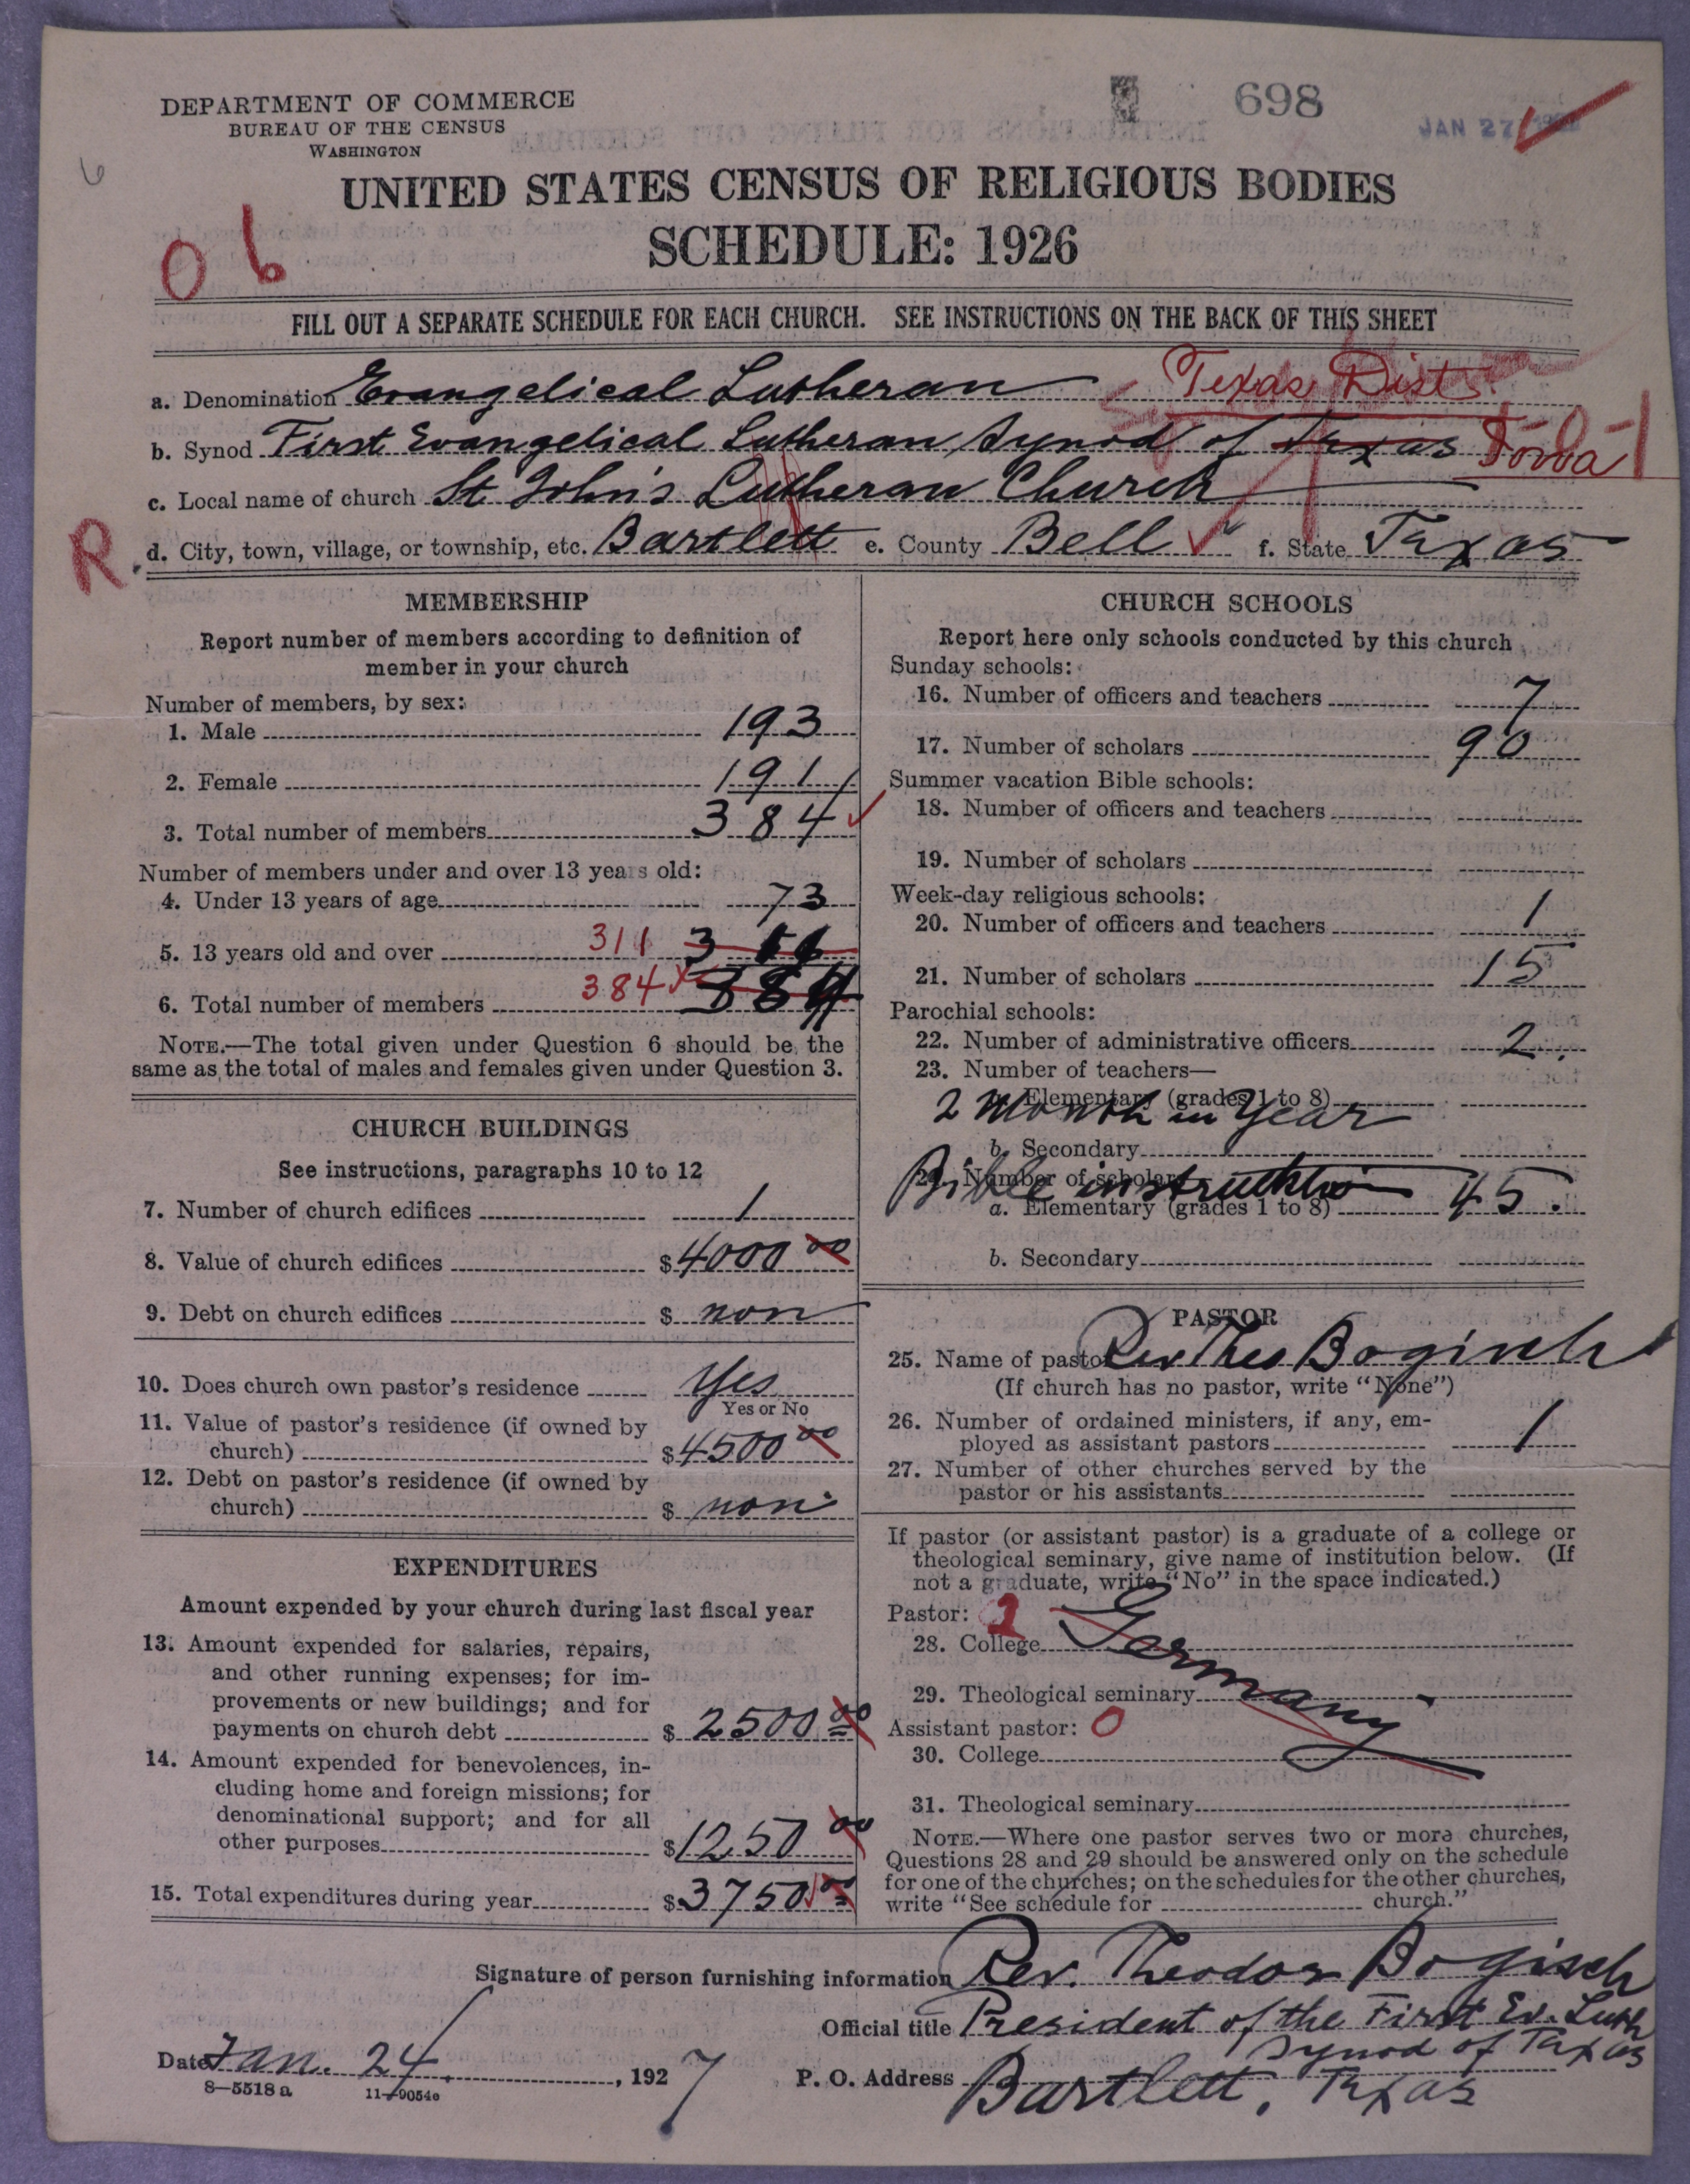 698
JAN 27
DEPARTMENT OF COMMERCE
BUREAU OF THE CENSUS
WASHINGTON
6
UNITED STATES CENSUS OF RELIGIOUS BODIES
SCHEDULE: 1926
06
FILL OUT A SEPARATE SCHEDULE FOR EACH CHURCH. SEE INSTRUCTIONS ON THE BACK OF THIS SHEET
a. Denomination Evangelical Lutheran Texas Dist.
b. Synod First Evangelical Lutheran Synod of Texas
c. Local name of church St John's Lutheran Church
R
d. City, town, village, or township, etc. Bartlett e. County Bell f. State Texas
MEMBERSHIP
Report number of members according to definition of
member in your church
Number of members, by sex:
1. Male 193
2. Female 191
3. Total number of members 384
Number of members under and over 13 years old:
4. Under 13 years of age 73
5. 13 years old and over 311
6. Total number of members 384 384
NOTE.—The total given under Question 6 should be the
same as the total of males and females given under Question 3.
CHURCH BUILDINGS
See instructions, paragraphs 10 to 12
7. Number of church edifices 1
8. Value of church edifices $ 4000 00
9. Debt on church edifices $ non
10. Does church own pastor's residence Yes
Yes or No
11. Value of pastor's residence (if owned by
church) $ 4500 00
12. Debt on pastor's residence (if owned by
church) $ non
EXPENDITURES
Amount expended by your church during last fiscal year
13. Amount expended for salaries, repairs,
and other running expenses; for im-
provements or new buildings; and for
payments on church debt $ 2500 00
14. Amount expended for benevolences, in-
cluding home and foreign missions; for
denominational support; and for all
other purposes $ 1250 00
15. Total expenditures during year $ 3750 00
CHURCH SCHOOLS
Report here only schools conducted by this church
Sunday schools:
16. Number of officers and teachers 7
17. Number of scholars 90
Summer vacation Bible schools:
18. Number of officers and teachers
19. Number of scholars
Week-day religious schools:
20. Number of officers and teachers 1
21. Number of scholars 15
Parochial schools:
22. Number of administrative officers 2.
23. Number of teachers—
a. Elementary (grades 1 to 8)
2 Month in Year
b. Secondary
24. Number of scholars
Bible instruktion 45.
a. Elementary (grades 1 to 8)
b. Secondary
PASTOR
25. Name of pastor Rev Theo Bogisch
(If church has no pastor, write "None")
26. Number of ordained ministers, if any, em-
ployed as assistant pastors 1
27. Number of other churches served by the
pastor or his assistants
If pastor (or assistant pastor) is a graduate of a college or
theological seminary, give name of institution below. (If
not a graduate, write "No" in the space indicated.)
Pastor: 2
28. College Germany
29. Theological seminary
Assistant pastor: 0
30. College
31. Theological seminary
NOTE.—Where one pastor serves two or more churches,
Questions 28 and 29 should be answered only on the schedule
for one of the churches; on the schedules for the other churches,
write "See schedule for church."
Signature of person furnishing information Rev. Theodor Bogisch
Official title President of the First Ev. Luth
Synod of Texas
Date Jan. 24, 1927 P. O. Address Bartlett, Texas
8—5518 a 11—9054e